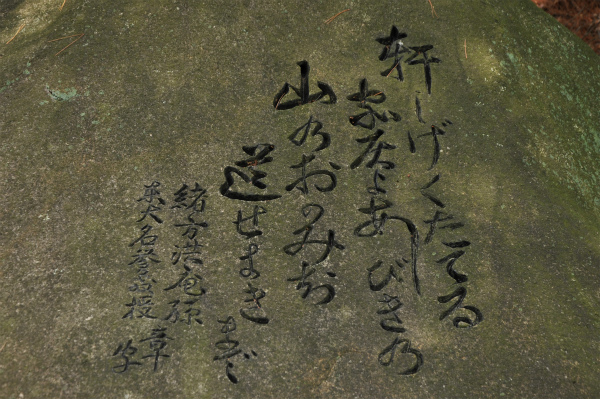 軒しげくたてる
家居よあしびきの
山のおのみち
道せまきまで
緒方洪庵孫
東大名誉教授 章